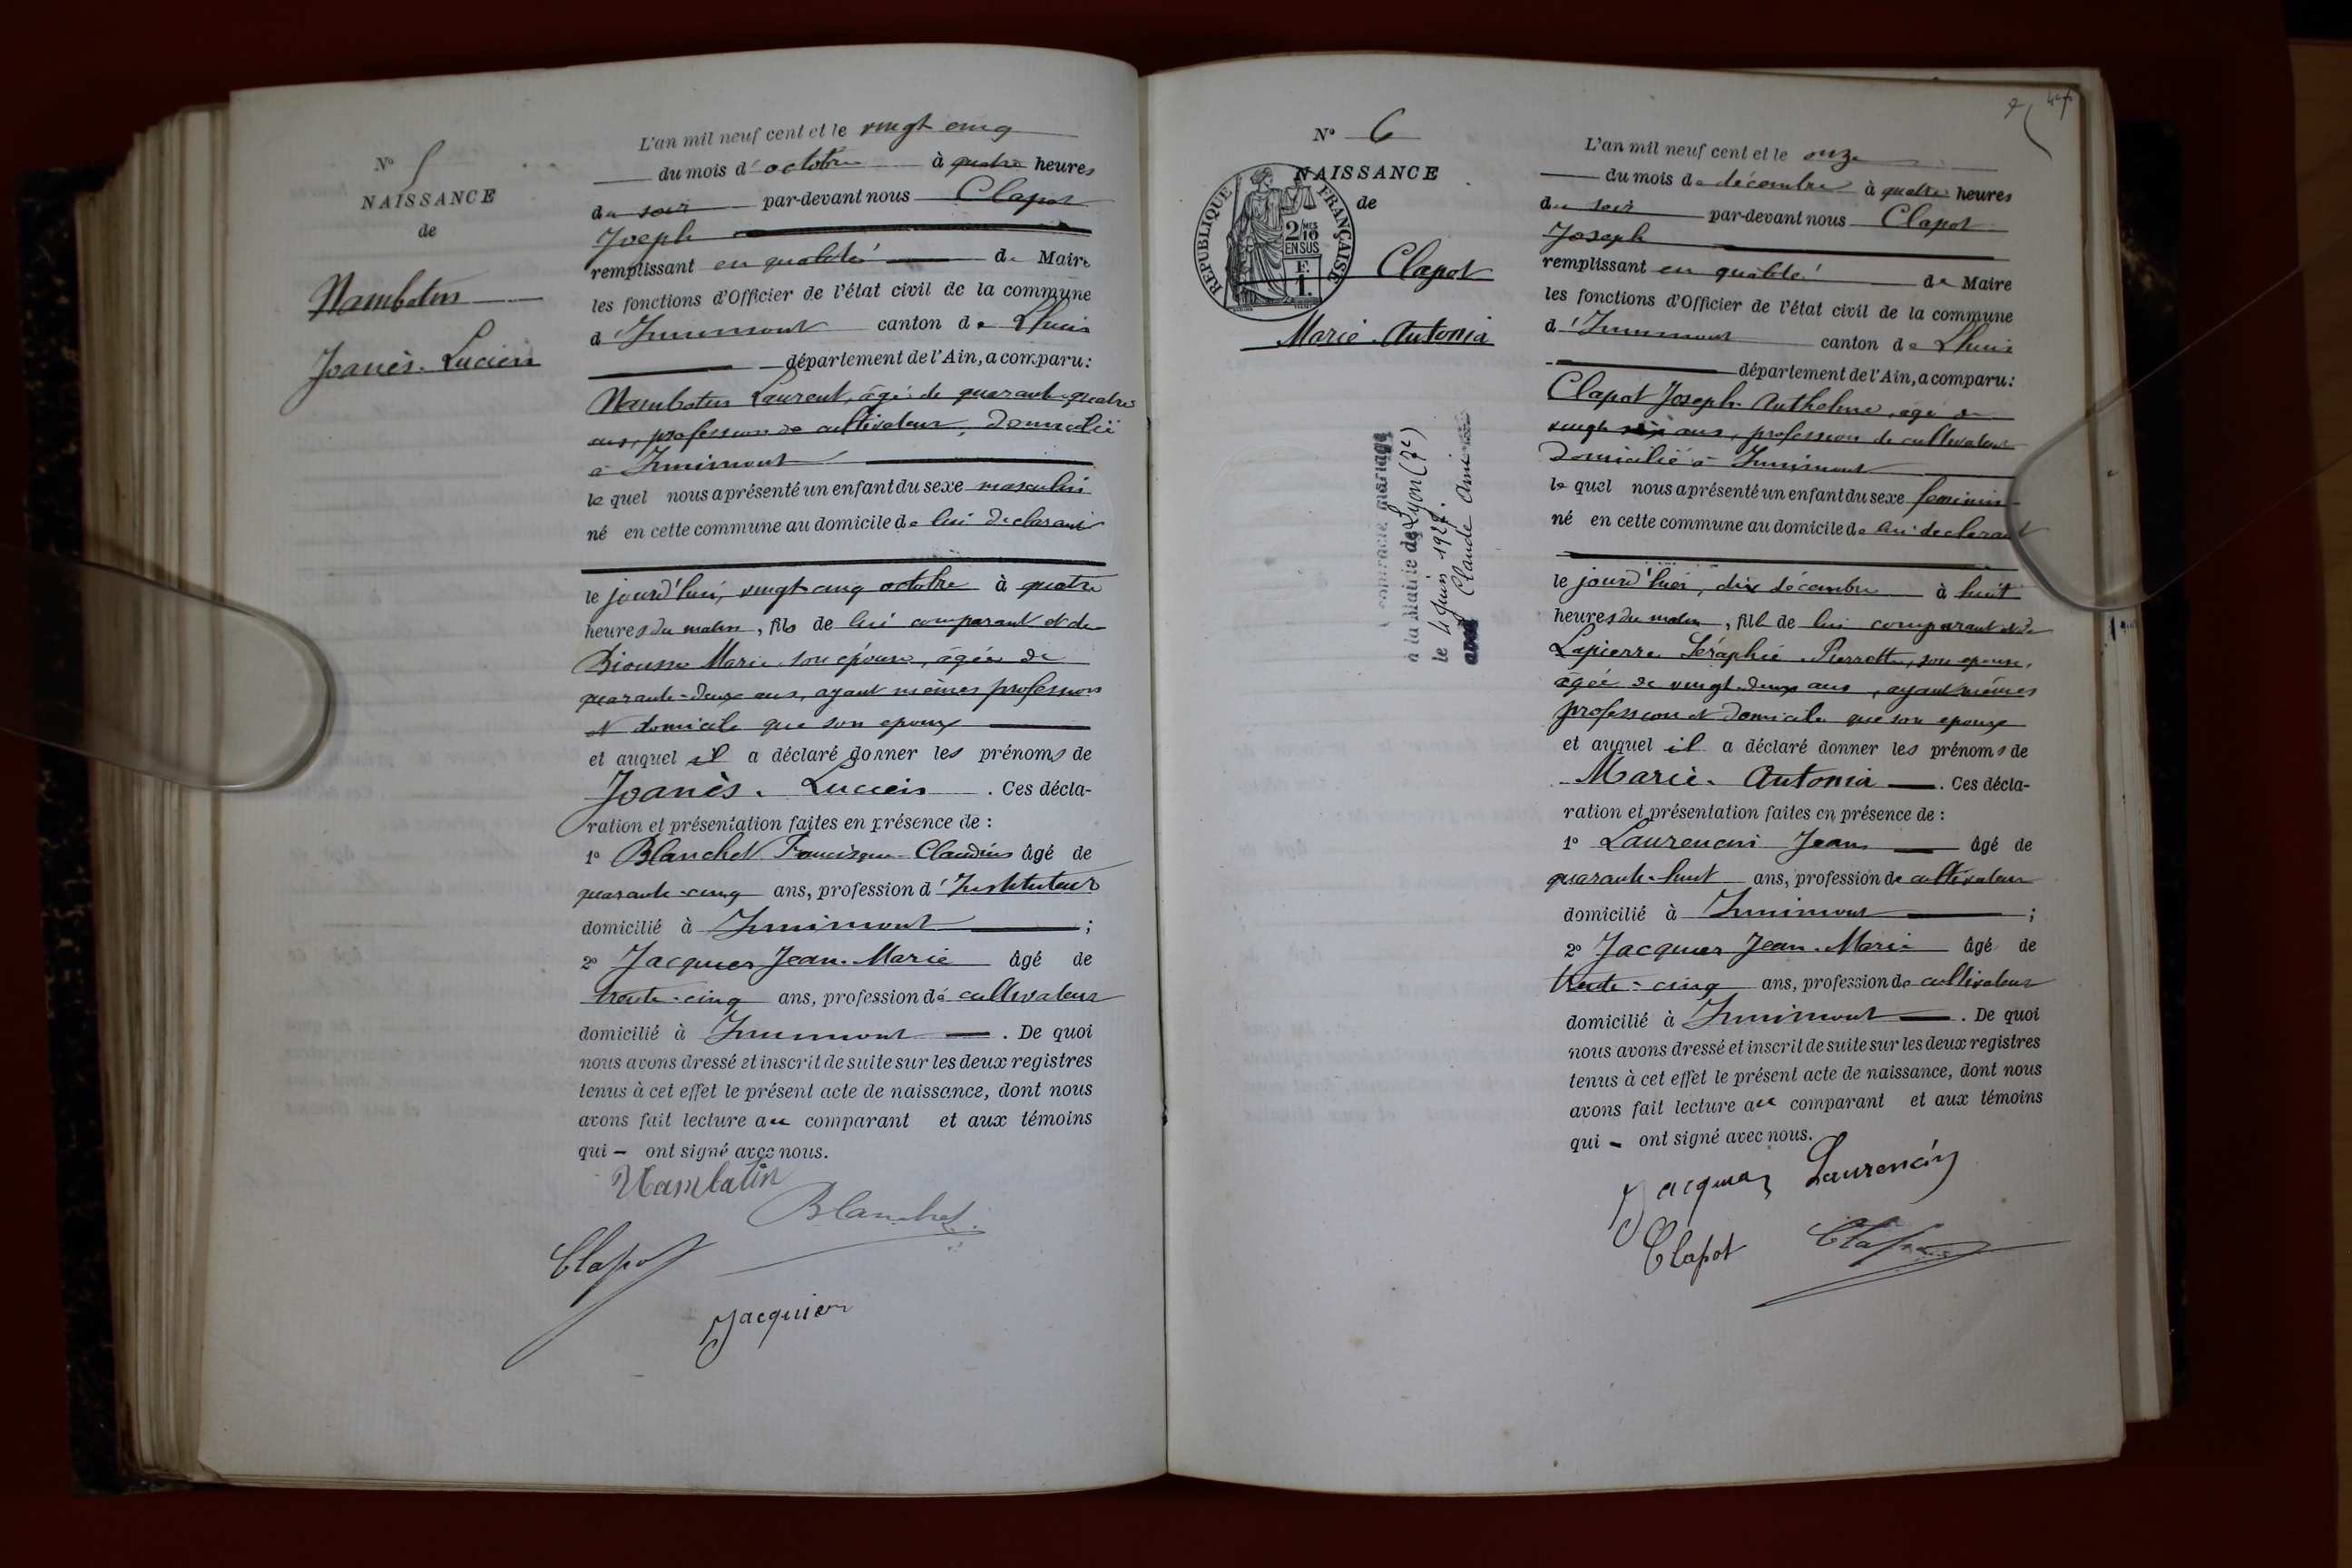 N° 5
NAISSANCE
de
Nambotin
Joanès. Lucien
L'an mil neuf cent et le vingt cinq
du mois d'octobre à quatre heures
du soir par-devant nous Clapot
Joseph
remplissant en qualité de Maire
les fonctions d'Officier de l'état civil de la commune
d'Innimont canton de Lhuis
département de l'Ain, a comparu:
Nambotin Laurent, âgé de quarante-quatre
ans, profession de cultivateur, domicilié
à Innimont
le quel nous a présenté un enfant du sexe masculin
né en cette commune au domicile de lui déclarant
le jourd'hui, vingt-cinq octobre à quatre
heures du matin, fils de lui comparant et de
Marie son épouse, âgée de
quarante-deux ans, ayant mêmes profession
et domicile que son époux
et auquel il a déclaré donner les prénoms de
Joanès. Lucien. Ces décla-
ration et présentation faites en présence de :
1° Blanchet Francisque Claudius âgé de
quarante-cinq ans, profession d'Instituteur
domicilié à Innimont ;
2° Jacquier Jean-Marie âgé de
trente-cinq ans, profession de cultivateur
domicilié à Innimont. De quoi
nous avons dressé et inscrit de suite sur les deux registres
tenus à cet effet le présent acte de naissance, dont nous
avons fait lecture au comparant et aux témoins
qui - ont signé avec nous.
Nambotin
Blanchet
Clapot
Jacquier
N° 6
NAISSANCE
de
RÉPUBLIQUE FRANÇAISE
2 MES
10
EN SUS
F.
1.
Clapot
Marie. Antonia
contracté mariage
à la Mairie de Lyon (7e)
le 4 Juin 1927.
avec Claude Aimé
L'an mil neuf cent et le onze
du mois de décembre à quatre heures
du soir par-devant nous Clapot
Joseph
remplissant en qualité de Maire
les fonctions d'Officier de l'état civil de la commune
d'Innimont canton de Lhuis
département de l'Ain, a comparu:
Clapot Joseph Anthelme, âgé de
vingt six ans, profession de cultivateur
domicilié à Innimont
le quel nous a présenté un enfant du sexe féminin
né en cette commune au domicile de lui déclarant
le jourd'hier, dix décembre à huit
heures du matin, fille de lui comparant et de
Lapierre Séraphie Pierrette, son épouse,
âgée de vingt-deux ans, ayant mêmes
profession et domicile que son époux
et auquel il a déclaré donner les prénoms de
Marie. Antonia. Ces décla-
ration et présentation faites en présence de :
1° Laurencin Jean âgé de
quarante-huit ans, profession de cultivateur
domicilié à Innimont ;
2° Jacquier Jean-Marie âgé de
trente-cinq ans, profession de cultivateur
domicilié à Innimont. De quoi
nous avons dressé et inscrit de suite sur les deux registres
tenus à cet effet le présent acte de naissance, dont nous
avons fait lecture au comparant et aux témoins
qui - ont signé avec nous.
Jacquier Laurencin
Clapot Clapot